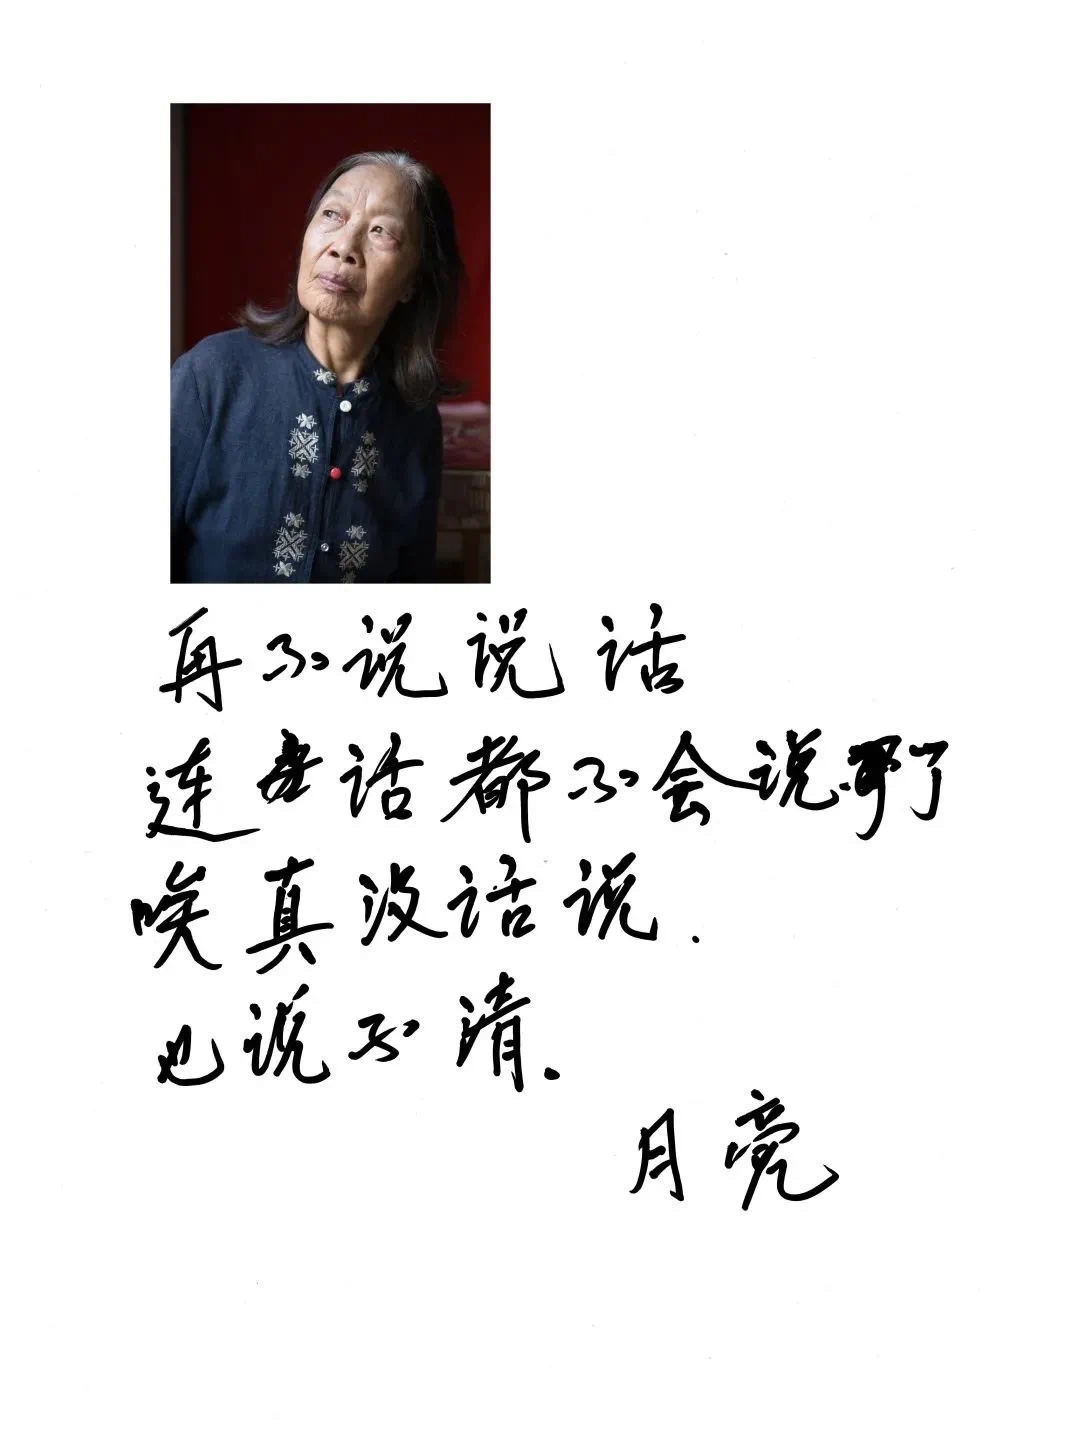 再不说说话
连 话都不会说了
唉真没话说.
也说不清.
月亮